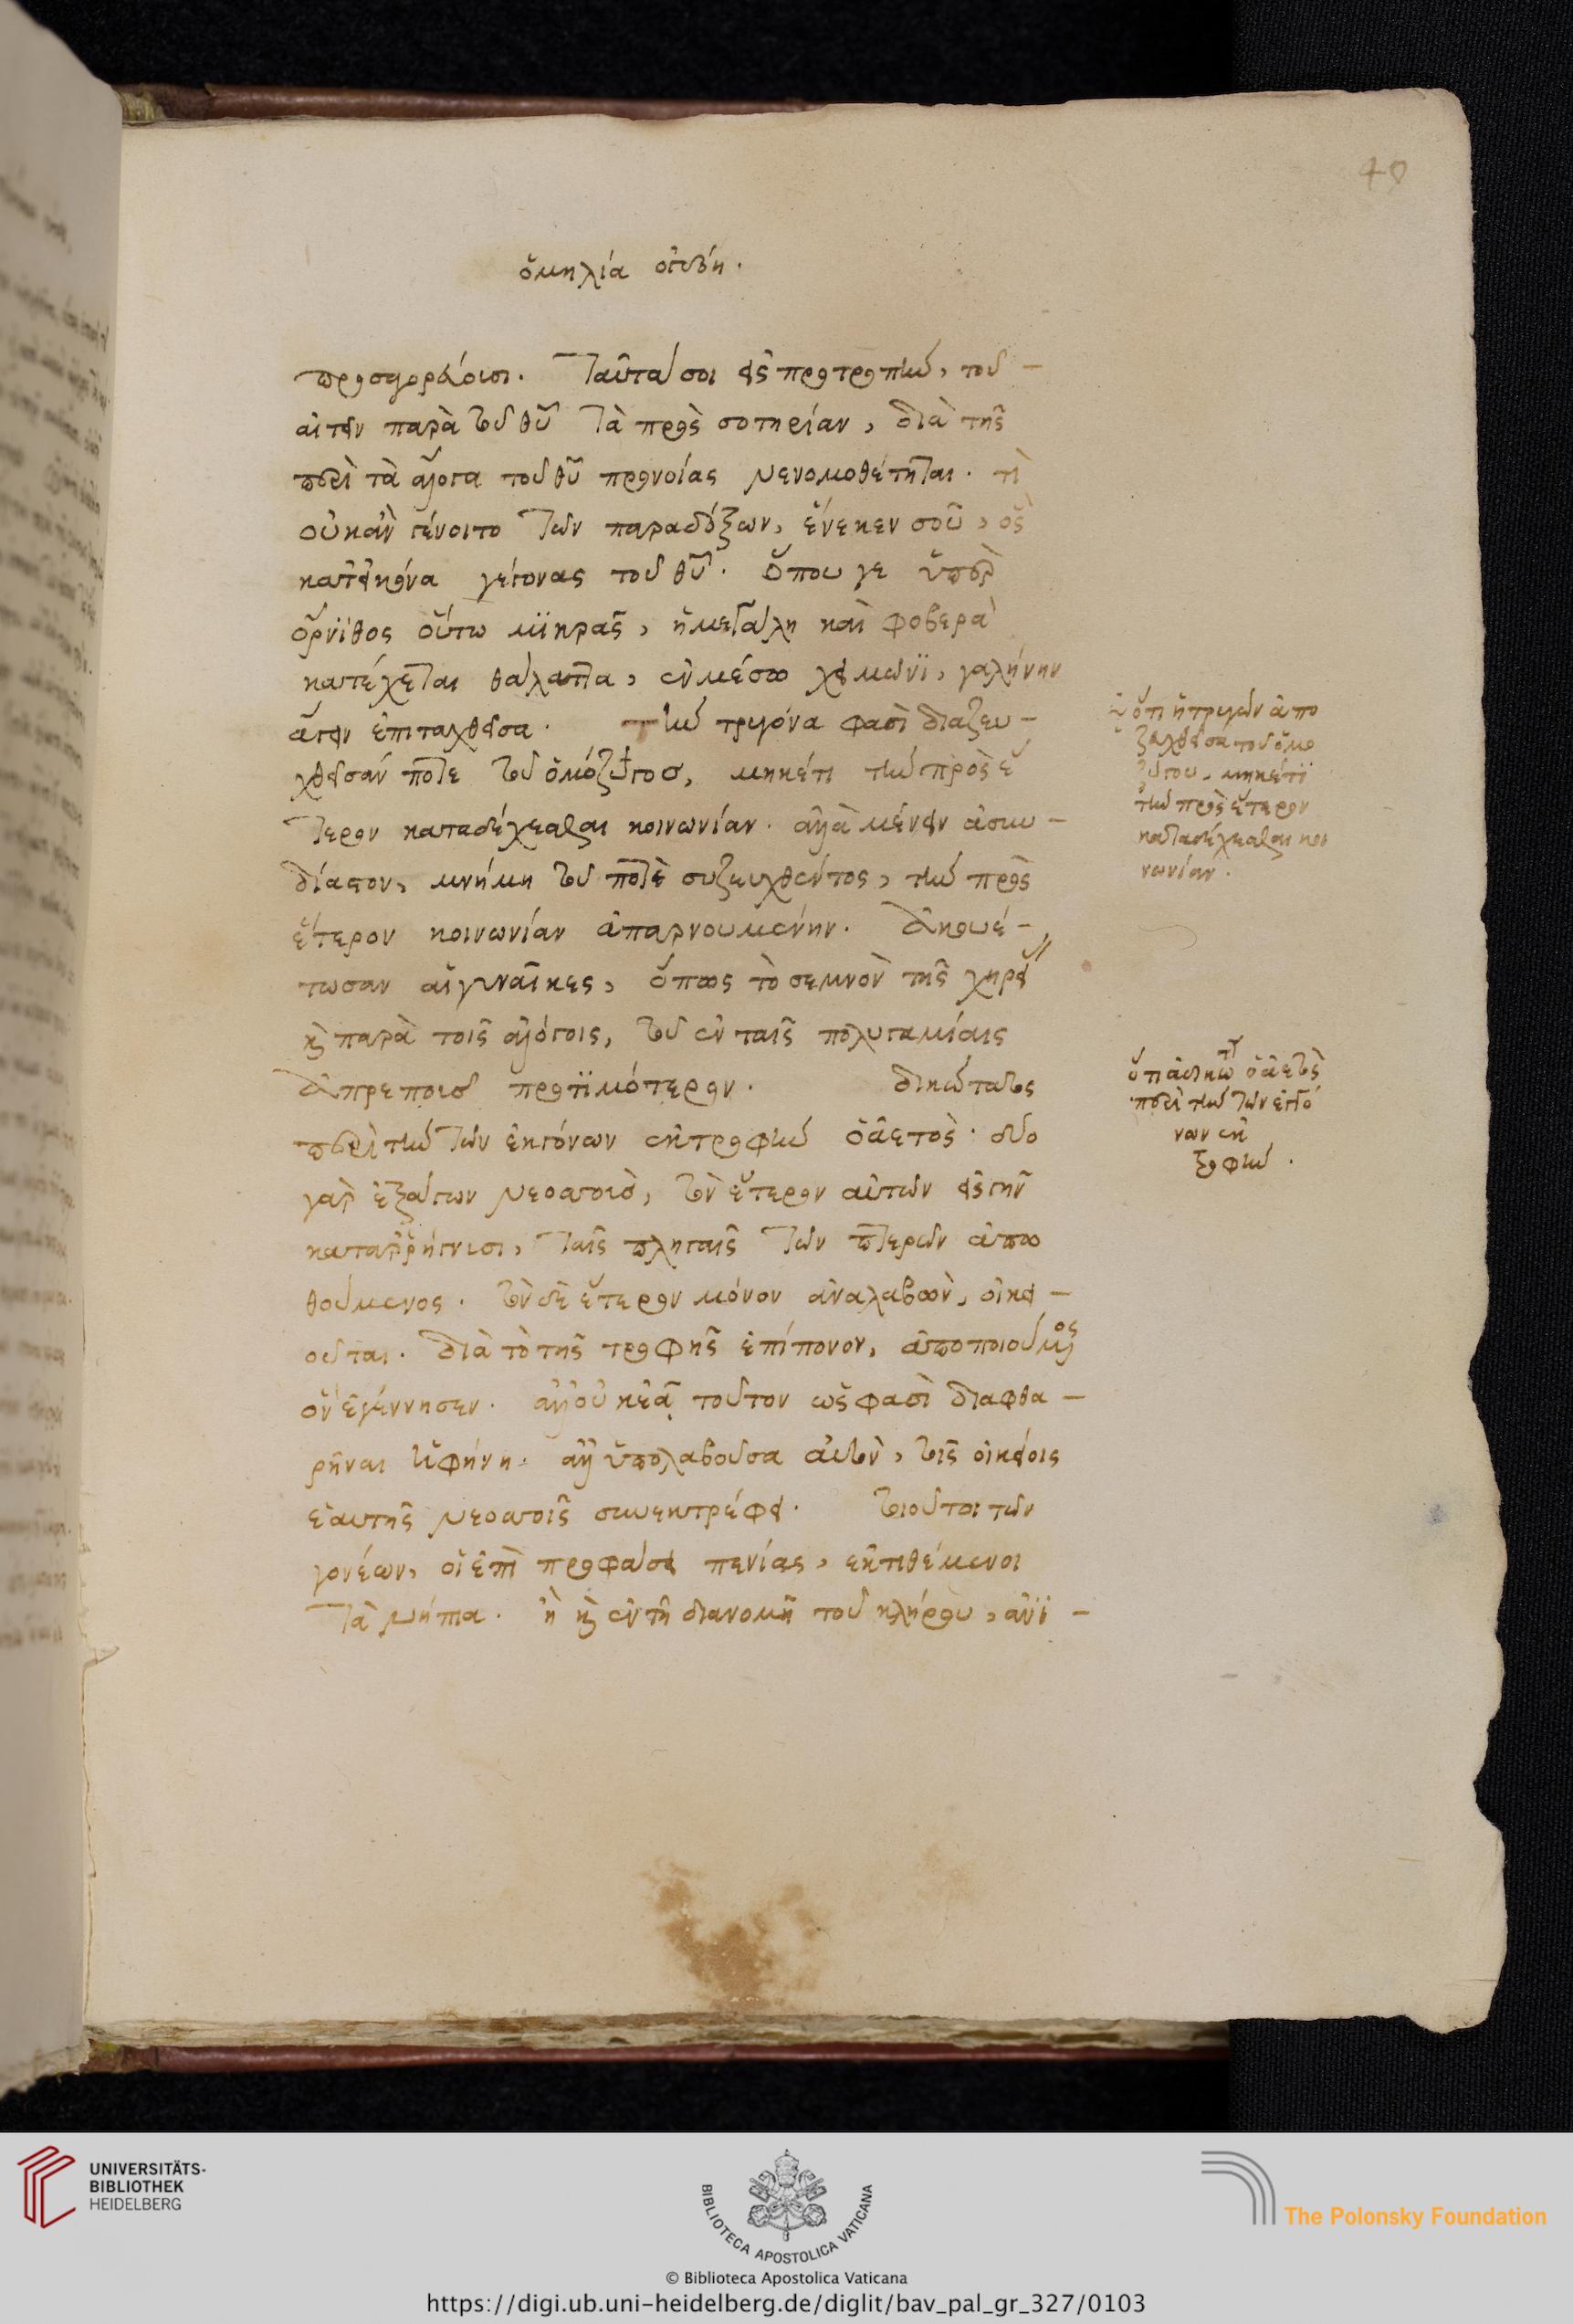 40
ὁμηλία ὀγδόη.
προσαγορεύουσι. ταῦτά σοι εἰς προτροπὴν, τοῦ
αἰτεῖν παρὰ τοῦ θῦ τὰ πρὸς σοτηρίαν, διὰ τῆς
περὶ τὰ ἄλογα τοῦ θῦ προνοίας νενομοθέτηται. τὶ
οὐκὰν γένοιτο τῶν παραδόξων, ἕνεκεν σοῦ, ὃς
κατ' εἰκόνα γέγονας τοῦ θῦ. ὅπου γε ὑπὲρ
ὄρνϊθος οὕτω μϊκρᾶς, ἡ μεγάλη καὶ φοβερὰ
κατέχεται θάλαττα, ἐν μέσω χειμῶνϊ, γαλήνην
ἄγειν ἐπιταχθεῖσα. τὴν τρυγόνα φασὶ διαζευ-
χθεῖσάν ποτε τοῦ ὁμόζυγος, μηκέτι τὴν πρὸς ἕ
τερον καταδέχεσθαι κοινωνίαν. ἀλλὰ μένειν ἀσυν-
δίαστον, μνήμη τοῦ ποτὲ συζευχθέντος, τὴν πρὸς
ἕτερον κοινωνίαν ἀπαρνουμένην. ἀκουέ-
τωσαν αἱ γυναῖκες, ὅπως τὸ σεμνὸν τῆς χηρεί
καὶ παρὰ τοῖς ἀλόγοις, τοῦ ἐν ταῖς πολυγαμίαις
ἀπρεποῦς προτϊμότερον. ἀδικώτατος
περὶ τὴν τῶν ἐκγόνων ἐκτροφὴν ὁ ἀετὸς. δύο
γὰρ ἐξάγων νεοττοὺς, τὸν ἕτερον αὐτῶν εἰς γῆν
καταρρήγνυσι, ταῖς πληγαῖς τῶν πτερῶν ἀπω
θούμενος. τὸν δὲ ἕτερον μόνον ἀναλαβὼν, οἰκει-
οῦται. διὰ τὸ τῆς τροφῆς ἐπίπονον, ἀποποιούμενος
ὃν ἐγέννησεν. ἀλλ' οὐκ ἐᾷ τοῦτον ὥς φασὶ διαφθα-
ρῆναι ἡ φήνη. ἀλλ' ὑπολαβοῦσα αὐτὸν, τοῖς οἰκείοις
ἑαυτῆς νεοττοῖς συνεκτρέφει. τοιοῦτοι τῶν
γονέων, οἱ ἐπὶ προφάσει πενίας, ἐκτιθέμενοι
τὰ νήπια. ἢ καὶ ἐν τῆ διανομῆ τοῦ κλήρου, ἀνϊ-
ὅτι ἡ τρυγὼν ἀπο
ζευχθεῖσα τοῦ ὁμο
ζύγου, μηκέτϊ
τὴν πρὸς ἕτερον
καταδέχεσθαι κοι
νωνίαν.
ὅτι ἀδικώτ ὁ ἀετὸς
περὶ τὴν τῶν ἐκγό
νων ἐκ
τροφὴν.
UNIVERSITÄTS-
BIBLIOTHEK
HEIDELBERG
BIBLIOTECA APOSTOLICA VATICANA
The Polonsky Foundation
© Biblioteca Apostolica Vaticana
https://digi.ub.uni-heidelberg.de/diglit/bav_pal_gr_327/0103